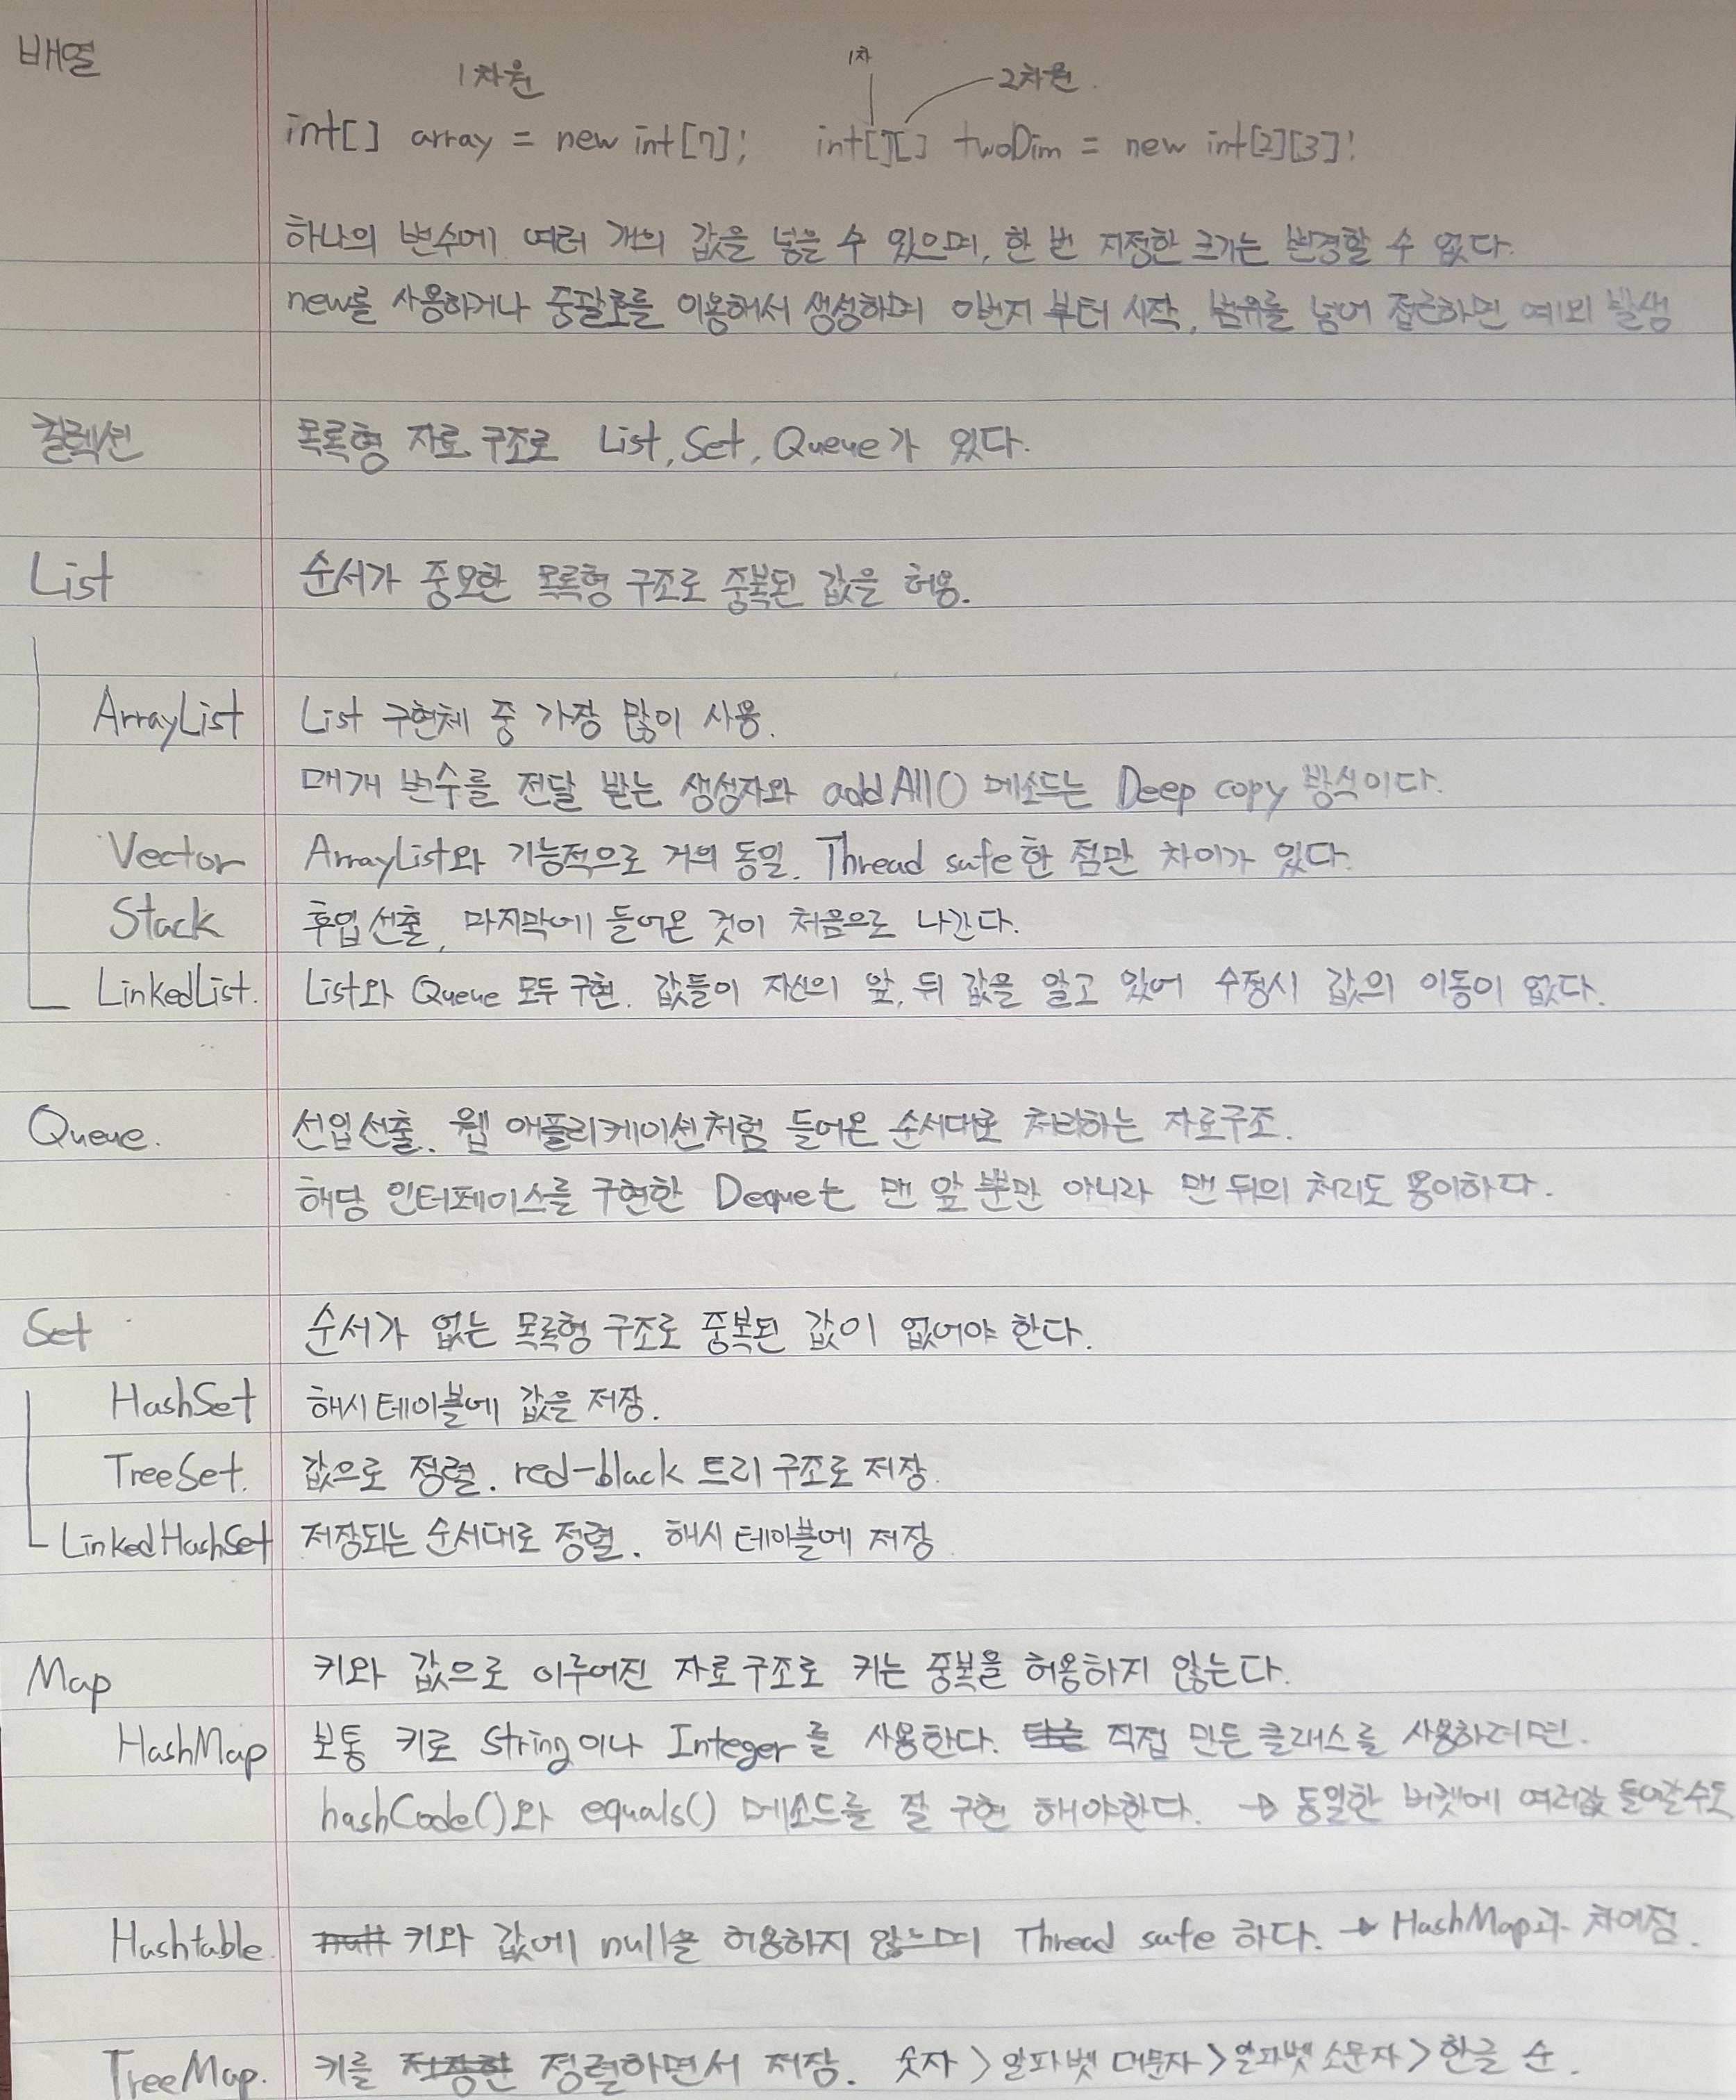 배열
1차원 1차 2차원.
int[] array = new int[7]; int[][] twoDim = new int[2][3];
하나의 변수에 여러 개의 값을 넣을 수 있으며, 한 번 지정한 크기는 변경할 수 없다.
new를 사용하거나 중괄호를 이용해서 생성하며 0번지 부터 시작, 범위를 넘어 접근하면 예외 발생
컬렉션 목록형 자료 구조로 List, Set, Queue가 있다.
List 순서가 중요한 목록형 구조로 중복된 값을 허용.
ArrayList List 구현체 중 가장 많이 사용.
매개 변수를 전달 받는 생성자와 addAll() 메소드는 Deep copy 방식이다.
Vector ArrayList와 기능적으로 거의 동일. Thread safe한 점만 차이가 있다.
Stack 후입선출, 마지막에 들어온 것이 처음으로 나간다.
LinkedList. List와 Queue 모두 구현. 값들이 자신의 앞, 뒤 값을 알고 있어 수정시 값의 이동이 없다.
Queue. 선입선출. 웹 애플리케이션처럼 들어온 순서대로 처리하는 자료구조.
해당 인터페이스를 구현한 Deque는 맨 앞 뿐만 아니라 맨 뒤의 처리도 용이하다.
Set 순서가 없는 목록형 구조로 중복된 값이 없어야 한다.
HashSet 해시테이블에 값을 저장.
TreeSet. 값으로 정렬. red-black 트리 구조로 저장.
LinkedHashSet 저장되는 순서대로 정렬. 해시 테이블에 저장
Map 키와 값으로 이루어진 자료구조로 키는 중복을 허용하지 않는다.
HashMap 보통 키로 String이나 Integer를 사용한다. 직접 만든 클래스를 사용하려면.
hashCode()와 equals() 메소드를 잘 구현 해야한다. → 동일한 버켓에 여러값 들어갈수도
Hashtable. null 키와 값에 null을 허용하지 않으며 Thread safe 하다. → HashMap과 차이점.
TreeMap. 키를 저장한 정렬하면서 저장. 숫자 > 알파벳 대문자 > 알파벳 소문자 > 한글 순.